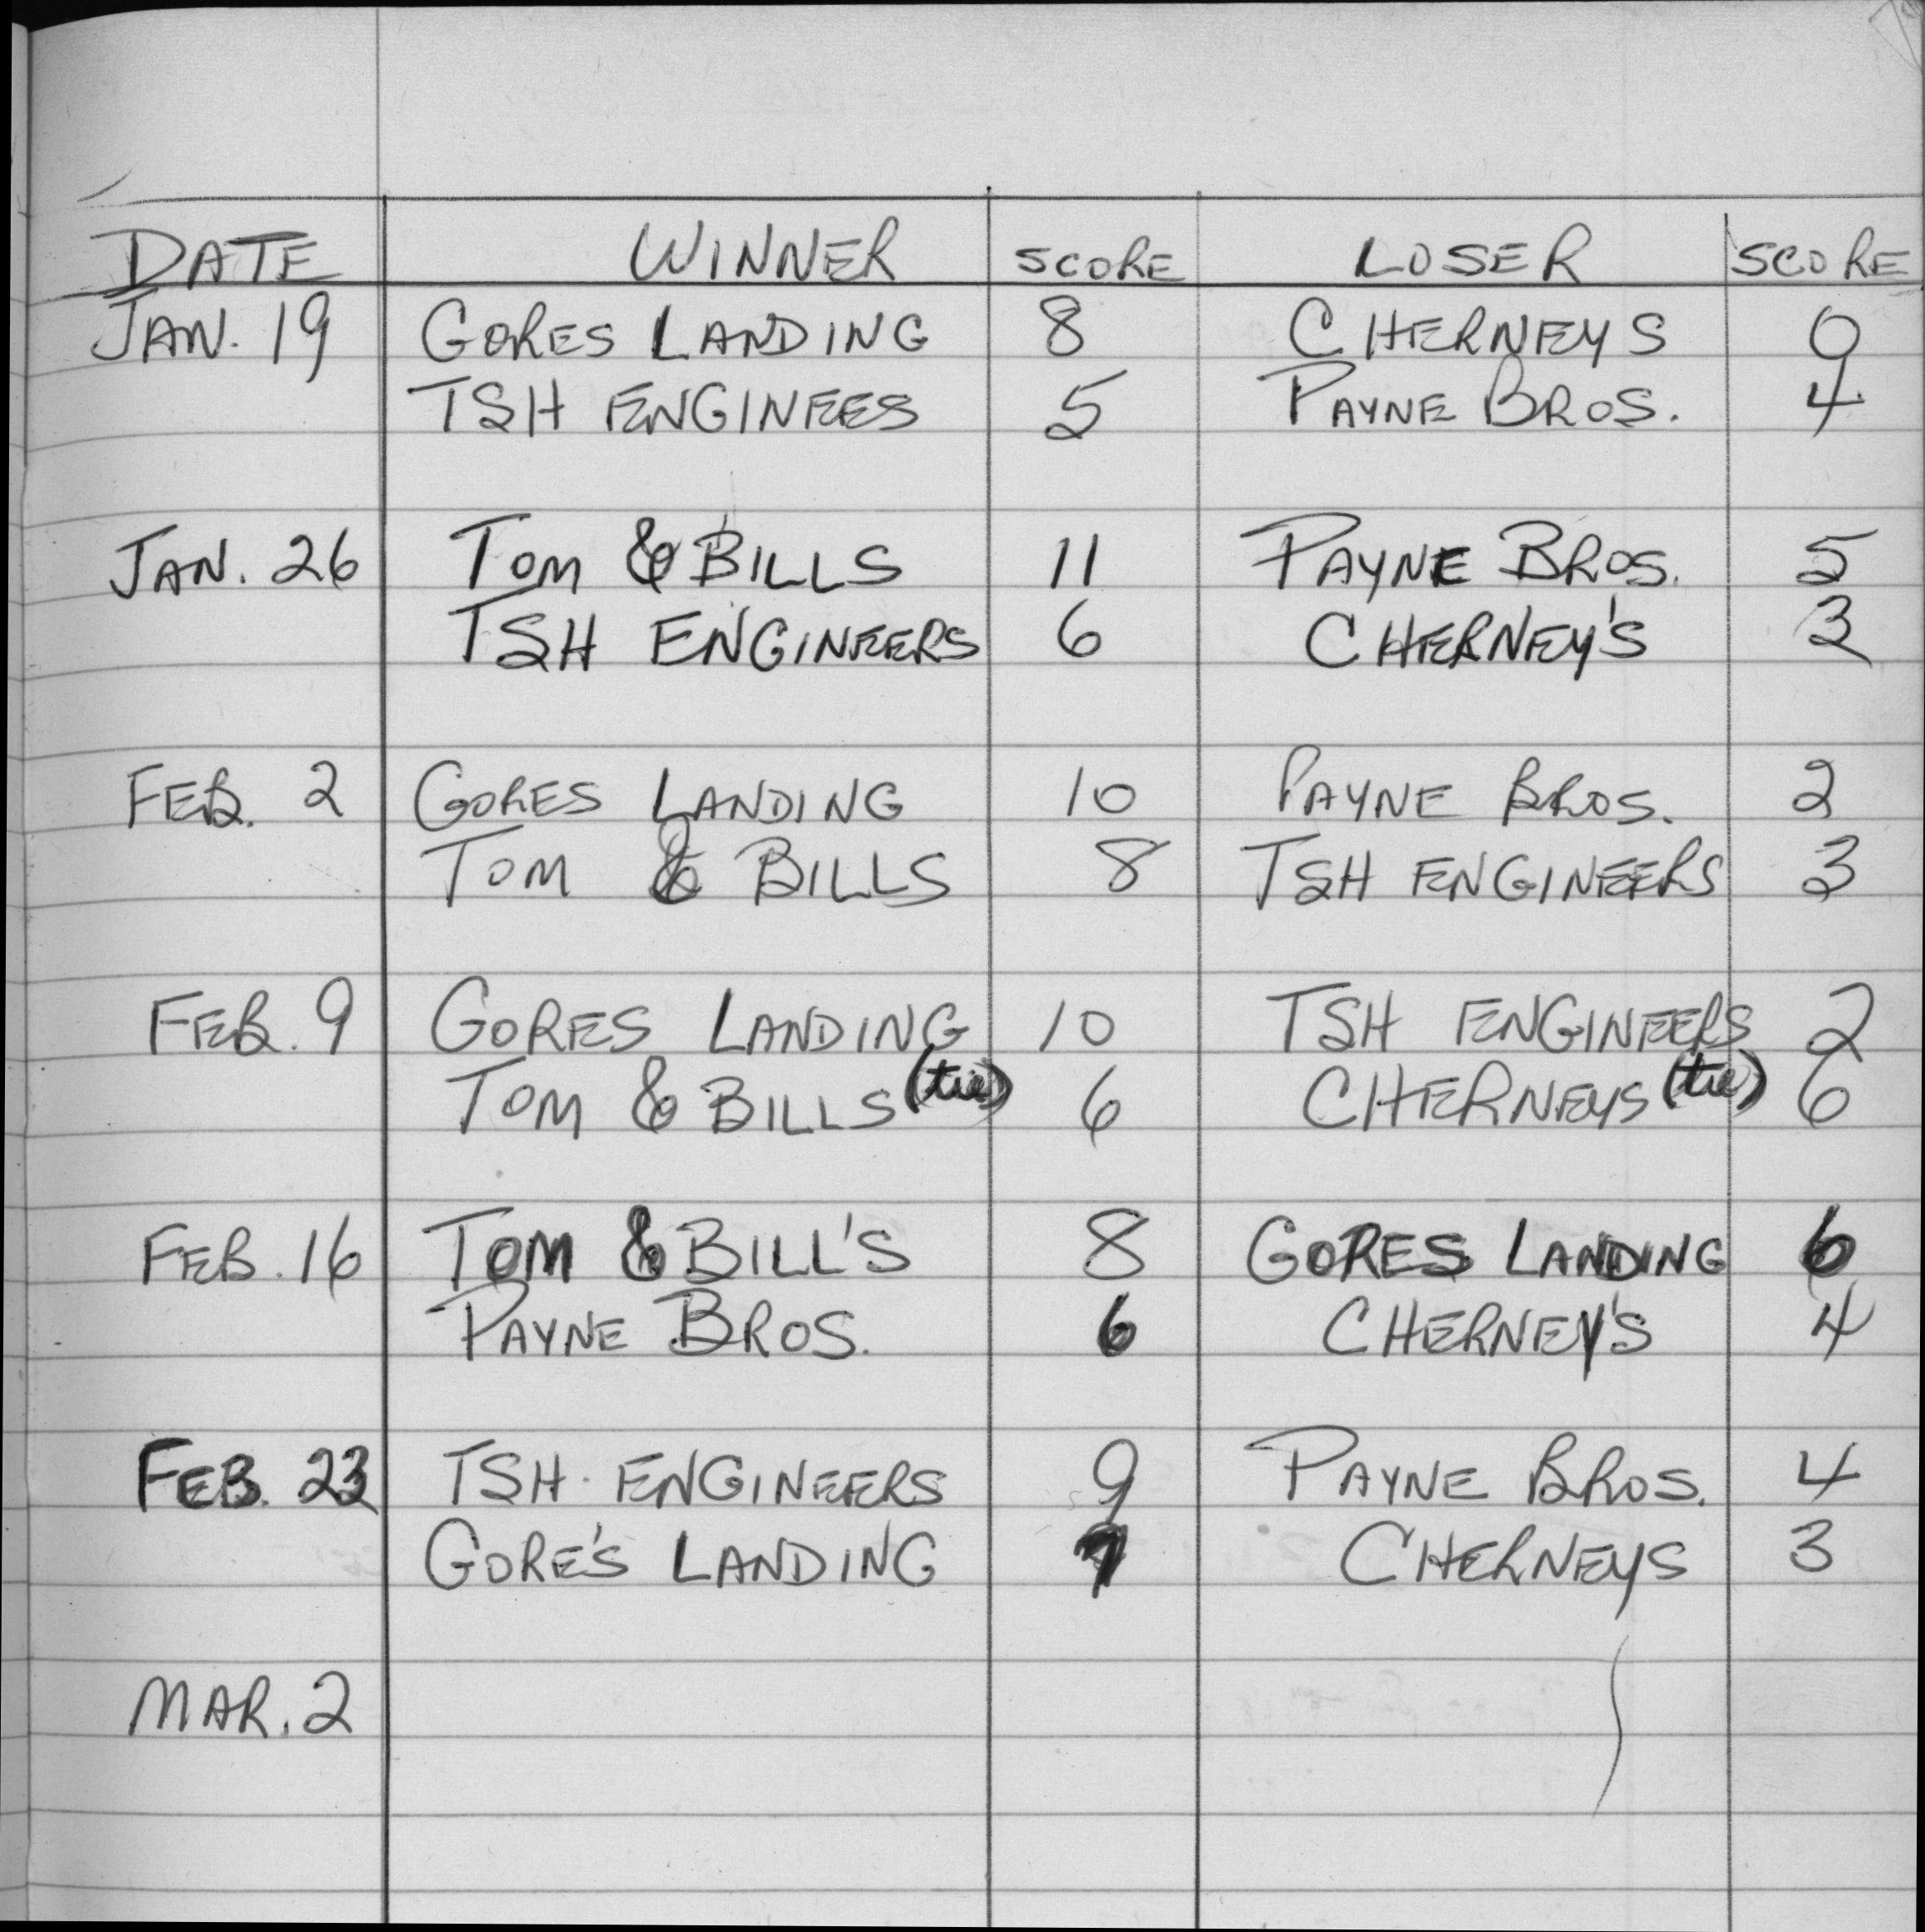 DATE WINNER SCORE LOSER SCORE
JAN. 19 GORES LANDING 8 CHERNEYS 0
TSH ENGINEES 5 PAYNE BROS. 4
JAN. 26 TOM & BILLS 11 PAYNE BROS. 5
TSH ENGINEERS 6 CHERNEY'S 3
FEB. 2 GORES LANDING 10 PAYNE BROS. 2
TOM & BILLS 8 TSH ENGINEERS 3
FEB. 9 GORES LANDING 10 TSH ENGINEERS 2
TOM & BILLS (tie) 6 CHERNEYS (tie) 6
FEB. 16 TOM & BILL'S 8 GORES LANDING 6
PAYNE BROS. 6 CHERNEY'S 4
FEB. 23 TSH ENGINEERS 9 PAYNE BROS. 4
GORE'S LANDING 7 CHERNEYS 3
MAR. 2